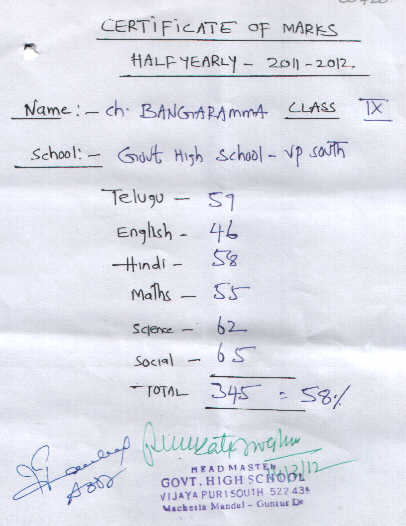 CERTIFICATE OF MARKS
HALF YEARLY - 2011-2012.
Name:- ch. BANGARAMMA CLASS IX
School:- Govt High School - VP South
Telugu - 59
English - 46
Hindi - 58
Maths - 55
Science - 62
Social - 65
TOTAL 345 = 58%
HEAD MASTER
GOVT. HIGH SCHOOL
VIJAYA PURI SOUTH 522 439
Macherla Mandal - Guntur Dt